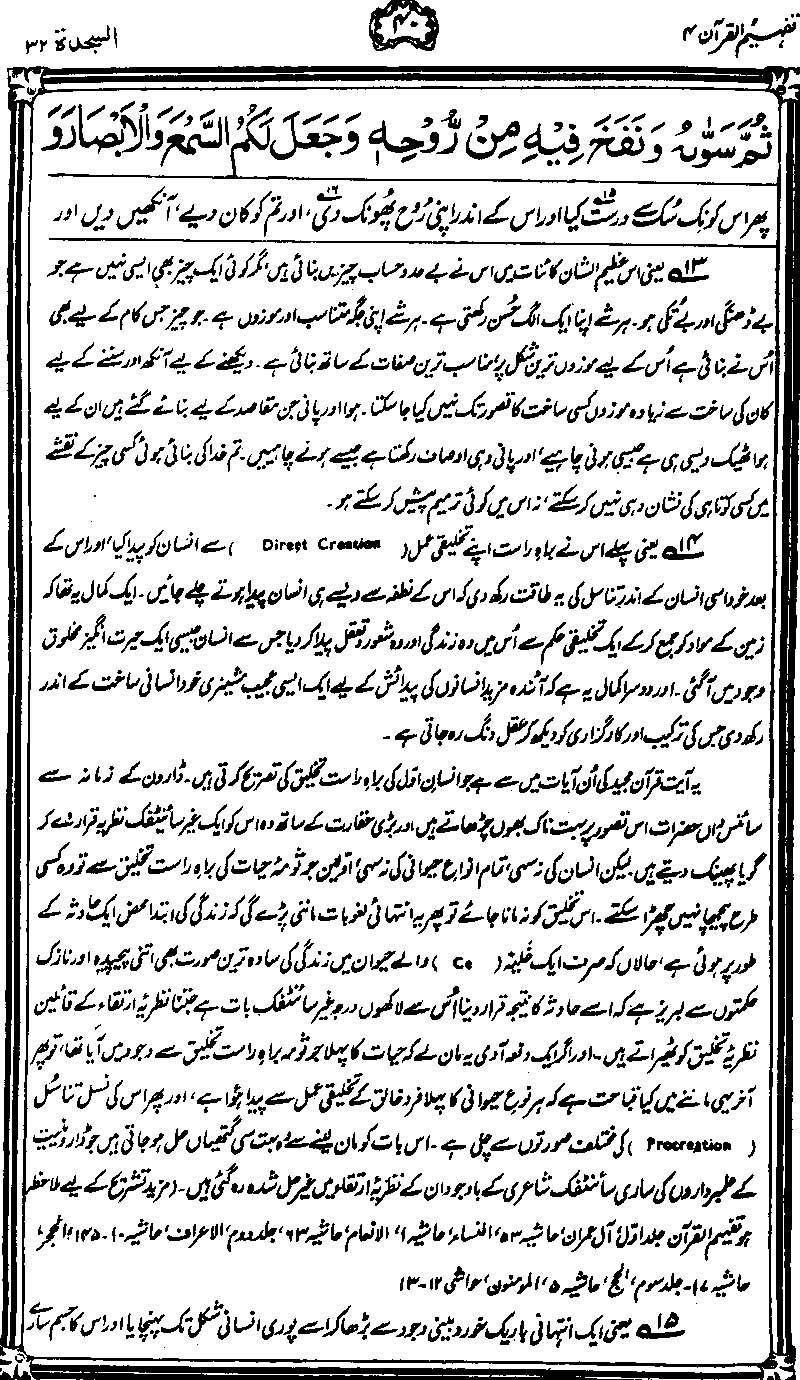 تفہیم القرآن ۴
۴۰
السجدۃ ۳۲
ثُمَّ سَوّٰىهُ وَنَفَخَ فِيْهِ مِنْ رُّوْحِهٖ وَجَعَلَ لَكُمُ السَّمْعَ وَالْاَبْصَارَ وَ
پھر اس کو نِک سُک سے درست کیا۱۵ اور اس کے اندر اپنی رُوح پھُونک دی۱۶، اور تم کو کان دیے، آنکھیں دیں اور
۱۳ یعنی اس عظیم الشان کائنات میں اس نے بے حد و حساب چیزیں بنائی ہیں، مگر کوئی ایک چیز بھی ایسی نہیں ہے جو
بے ڈھنگی اور بے تُکی ہو۔ ہر شے اپنا ایک الگ حُسن رکھتی ہے۔ ہر شے اپنی جگہ متناسب اور موزوں ہے۔ جو چیز جس کام کے لیے بھی
اُس نے بنائی ہے اُس کے لیے موزوں ترین شکل پر، مناسب ترین صفات کے ساتھ بنائی ہے۔ دیکھنے کے لیے آنکھ اور سننے کے لیے
کان کی ساخت سے زیادہ موزوں کسی ساخت کا تصور تک نہیں کیا جا سکتا۔ ہوا اور پانی جن مقاصد کے لیے بنائے گئے ہیں ان کے لیے
ہوا ٹھیک ویسی ہی ہے جیسی ہونی چاہیے، اور پانی وہی اوصاف رکھتا ہے جیسے ہونے چاہییں۔ تم خدا کی بنائی ہوئی کسی چیز کے نقشے
میں کسی کوتاہی کی نشان دہی نہیں کر سکتے، نہ اس میں کوئی ترمیم پیش کر سکتے ہو۔
۱۴ یعنی پہلے اس نے براہِ راست اپنے تخلیقی عمل (Direct Creation) سے انسان کو پیدا کیا، اور اس کے
بعد خود اسی انسان کے اندر تناسل کی یہ طاقت رکھ دی کہ اس کے نطفہ سے ویسے ہی انسان پیدا ہوتے چلے جائیں۔ ایک کمال یہ تھا کہ
زمین کے مواد کو جمع کر کے ایک تخلیقی حکم سے اُس میں وہ زندگی اور وہ شعور و تعقل پیدا کر دیا جس سے انسان جیسی ایک حیرت انگیز مخلوق
وجود میں آگئی۔ اور دوسرا کمال یہ ہے کہ آئندہ مزید انسانوں کی پیدائش کے لیے ایک ایسی عجیب مشینری خود انسانی ساخت کے اندر
رکھ دی جس کی ترکیب اور کارگزاری کو دیکھ کر عقل دنگ رہ جاتی ہے۔
یہ آیت قرآن مجید کی اُن آیات میں سے ہے جو انسانِ اوّل کی براہِ راست تخلیق کی تصریح کرتی ہیں۔ ڈارون کے زمانہ سے
سائنس داں حضرات اس تصور پر بہت ناک بھوں چڑھاتے ہیں اور بڑی حقارت کے ساتھ وہ اس کو ایک غیر سائنٹفک نظریہ قرار دے کر
گویا پھینک دیتے ہیں۔ لیکن انسان کی نہ سہی، تمام انواعِ حیوانی کی نہ سہی، اوّلین جرثومۂ حیات کی براہِ راست تخلیق سے تو وہ کسی
طرح پیچھا نہیں چھڑا سکتے۔ اس تخلیق کو نہ مانا جائے تو پھر یہ انتہائی لغو بات ماننی پڑے گی کہ زندگی کی ابتدا محض ایک حادثہ کے
طور پر ہوئی ہے، حالاں کہ صرف ایک خَلیّہ (Ce) والے حیوان میں زندگی کی سادہ ترین صورت بھی اتنی پیچیدہ اور نازک
حکمتوں سے لبریز ہے کہ اسے حادثہ کا نتیجہ قرار دینا اُس سے لاکھوں درجہ غیر سائنٹفک بات ہے جتنا نظریۂ ارتقاء کے قائلین
نظریۂ تخلیق کو ٹھیراتے ہیں۔ اور اگر ایک دفعہ آدمی یہ مان لے کہ حیات کا پہلا جرثومہ براہِ راست تخلیق سے وجود میں آیا تھا، تو پھر
آخر یہی ماننے میں کیا قباحت ہے کہ ہر نوعِ حیوانی کا پہلا فرد خالق کے تخلیقی عمل سے پیدا ہُوا ہے، اور پھر اس کی نسل تناسُل
(Procreation) کی مختلف صورتوں سے چلی ہے۔ اس بات کو مان لینے سے وہ بہت سی گتھیاں حل ہو جاتی ہیں جو ڈارونیت
کے علمبرداروں کی ساری سائنٹفک شاعری کے باوجود ان کے نظریۂ ارتقاء میں غیر حل شدہ رہ گئی ہیں۔ (مزید تشریح کے لیے ملاحظہ
ہو تفہیم القرآن جلد اوّل، آل عمران، حاشیہ ۵۳، النساء، حاشیہ ۱، الانعام، حاشیہ ۶۳، جلد دوم، الاعراف، حاشیہ ۱۰۔۱۴۵، الحجر،
حاشیہ ۱۷۔ جلد سوم، الحج، حاشیہ ۵، المومنون، حواشی ۱۲-۱۳
۱۵ یعنی ایک انتہائی باریک خوردبینی وجود سے بڑھا کر اسے پوری انسانی شکل تک پہنچایا اور اس کا جسم سارے